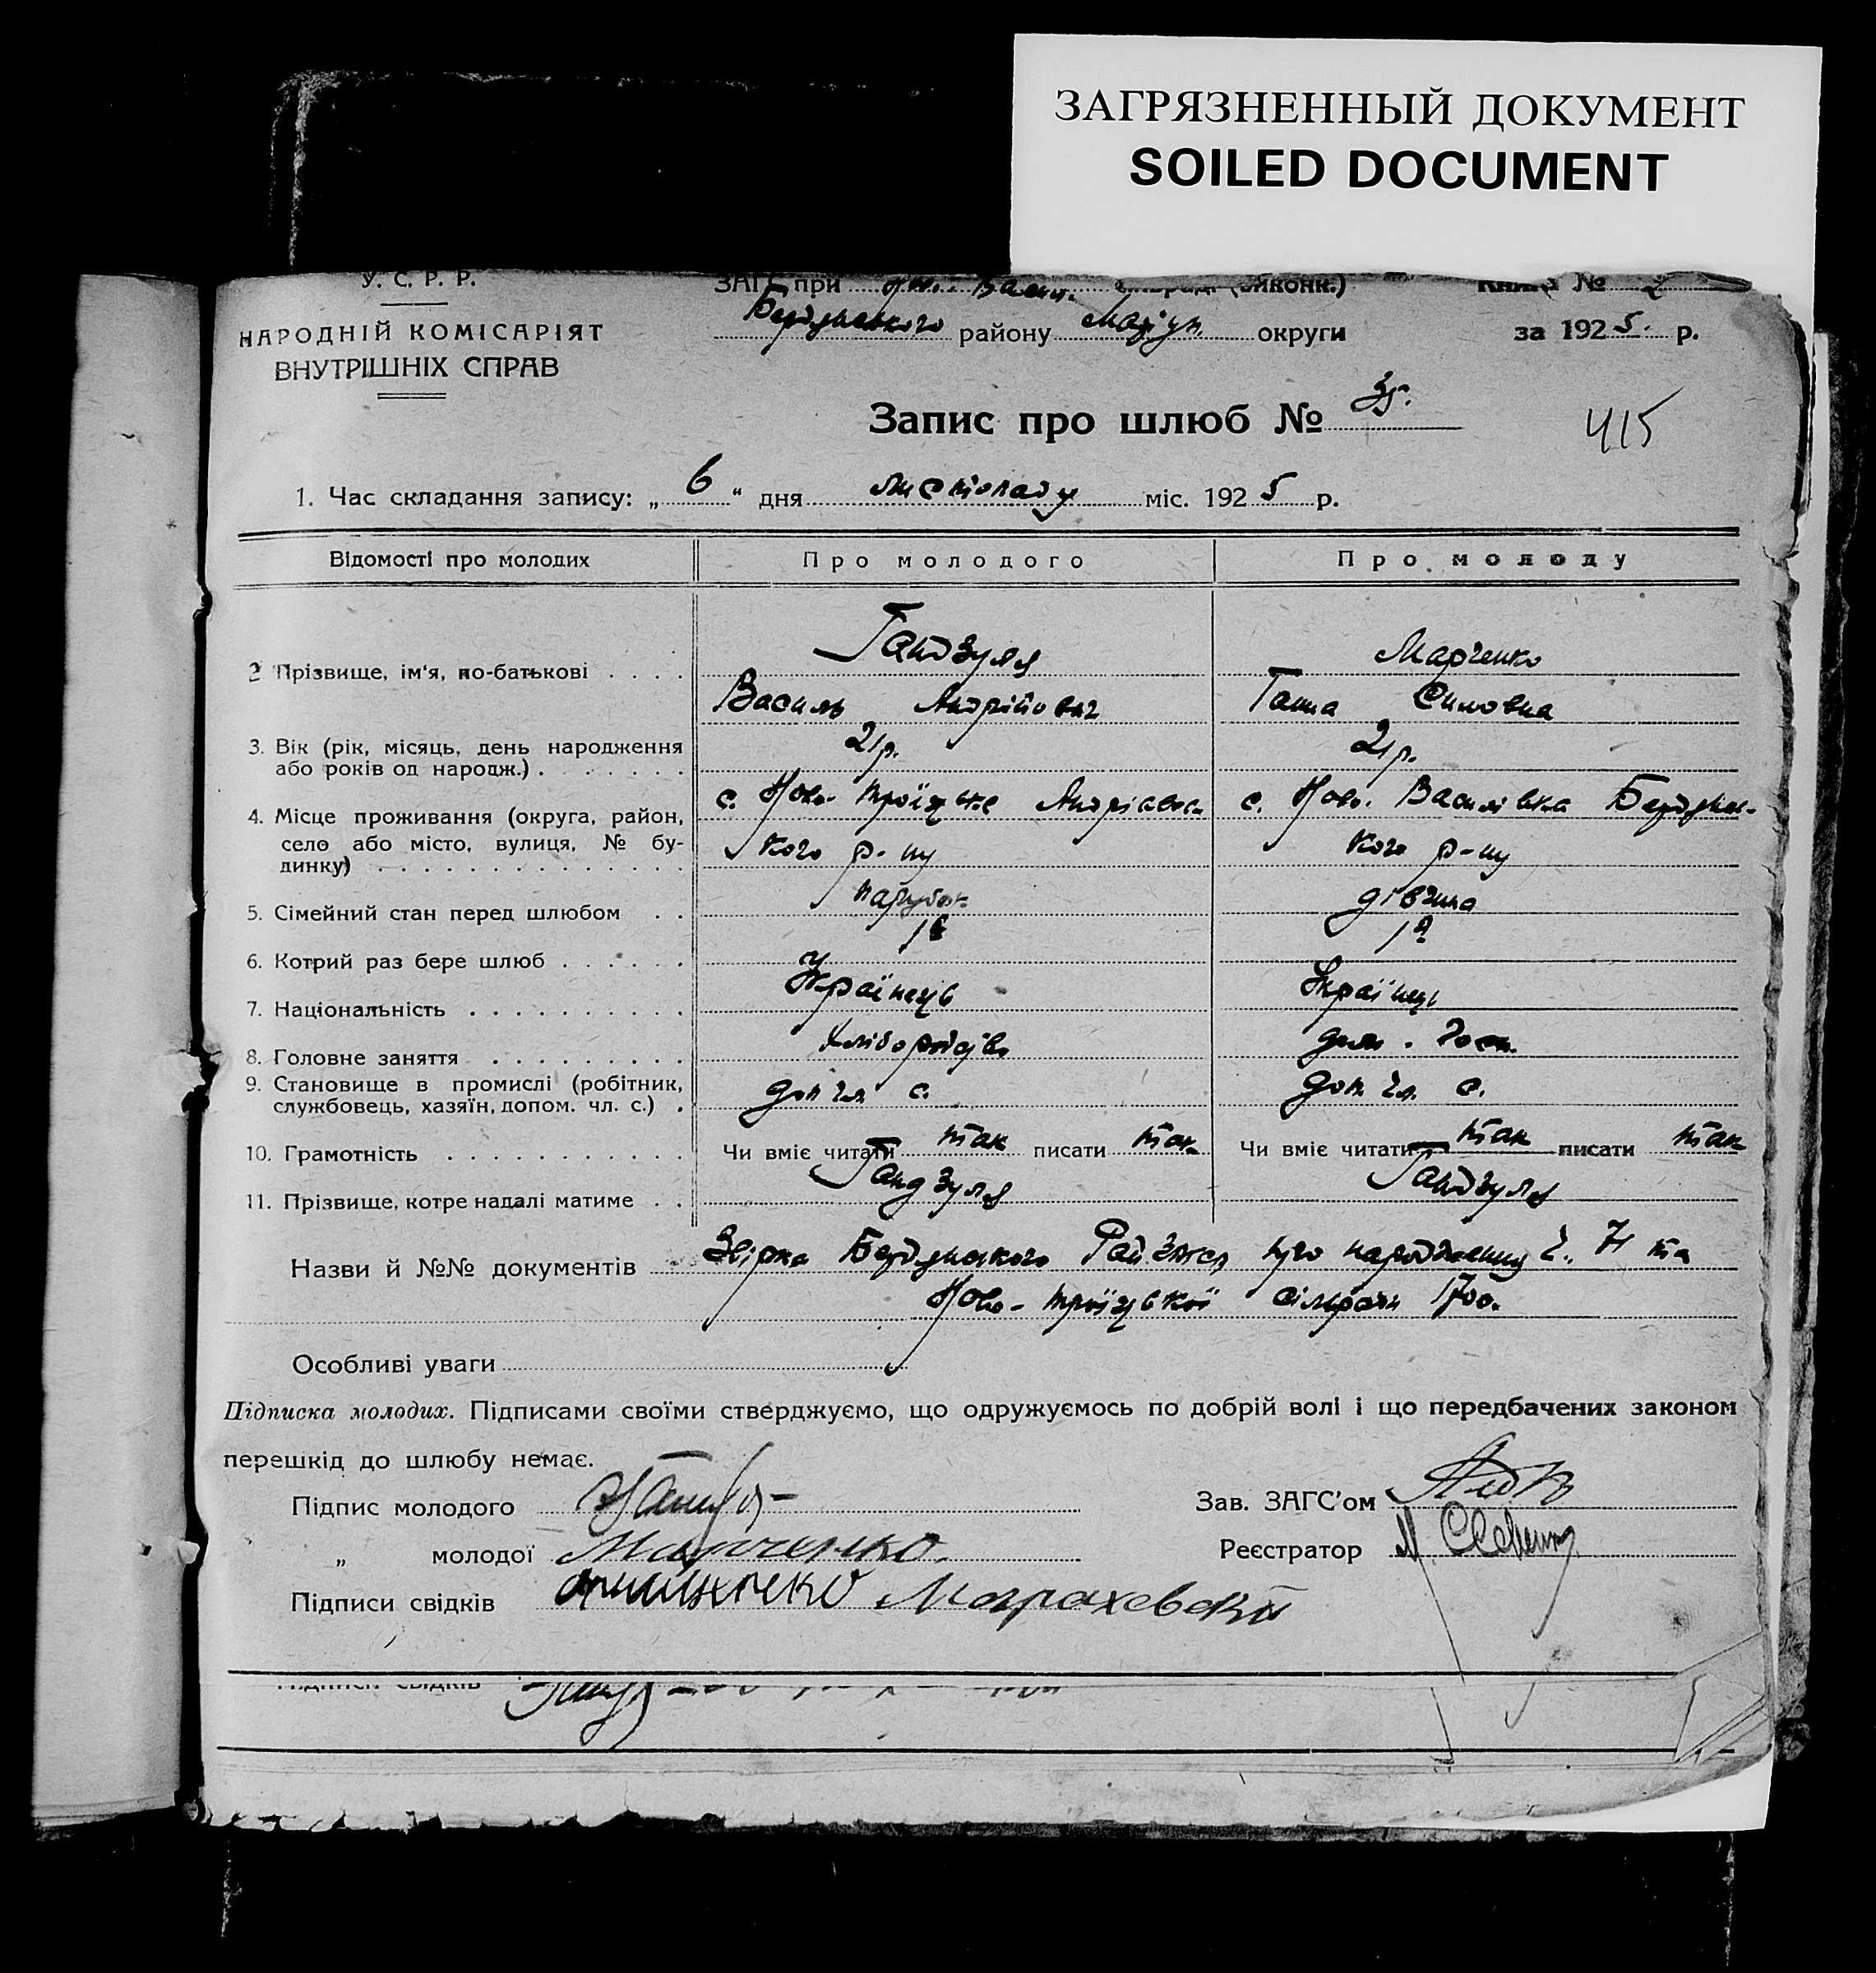 ЗАГРЯЗНЕННЫЙ ДОКУМЕНТ
SOILED DOCUMENT
У. С. Р. Р.
НАРОДНІЙ КОМІСАРІЯТ
ВНУТРІШНІХ СПРАВ
ЗАГС при
району округи
Книга № 2
за 1925 р.
Запис про шлюб № 35.
415
1. Час складання запису: „ 6 “ дня листопаду міс. 1925 р.
Відомості про молодих Про молодого Про молоду
Гандзуля Марченко
2 Прізвище, ім'я, по-батькові . . . .
Василь Андрійович Ганна Симовна
3. Вік (рік, місяць, день народження 21р. 21р.
або років од народж.) . . . . . . .
с. Ново-Троїцьке Андріавсь- с. Ново-Василівка Бердянсь-
4. Місце проживання (округа, район,
село або місто, вулиця, № бу- кого р-ну кого р-ну
динку)
парубок дівчина
5. Сімейний стан перед шлюбом . .
6. Котрий раз бере шлюб . . . . . . 1й 1й
Українець Українц
7. Національність
Хлібороб дом. госп.
8. Головне заняття
9. Становище в промислі (робітник, доп чл с. доп. чл. с.
службовець, хазяїн, допом. чл. с.) .
10. Грамотність Чи вміє читати так писати так Чи вміє читати так писати так
11. Прізвище, котре надалі матиме . . Гандзуля Гандзуля
Назви й №№ документів Бердянського народження ч. 71 та
Ново-Троїцької сільради 1700.
Особливі уваги
Підписка молодих. Підписами своїми стверджуємо, що одружуємось по добрій волі і що передбачених законом
перешкід до шлюбу немає.
Підпис молодого Зав. ЗАГС’ом
„ молодої Марченко. Реєстратор М.
Підписи свідків Марахевский
Підписи свідків